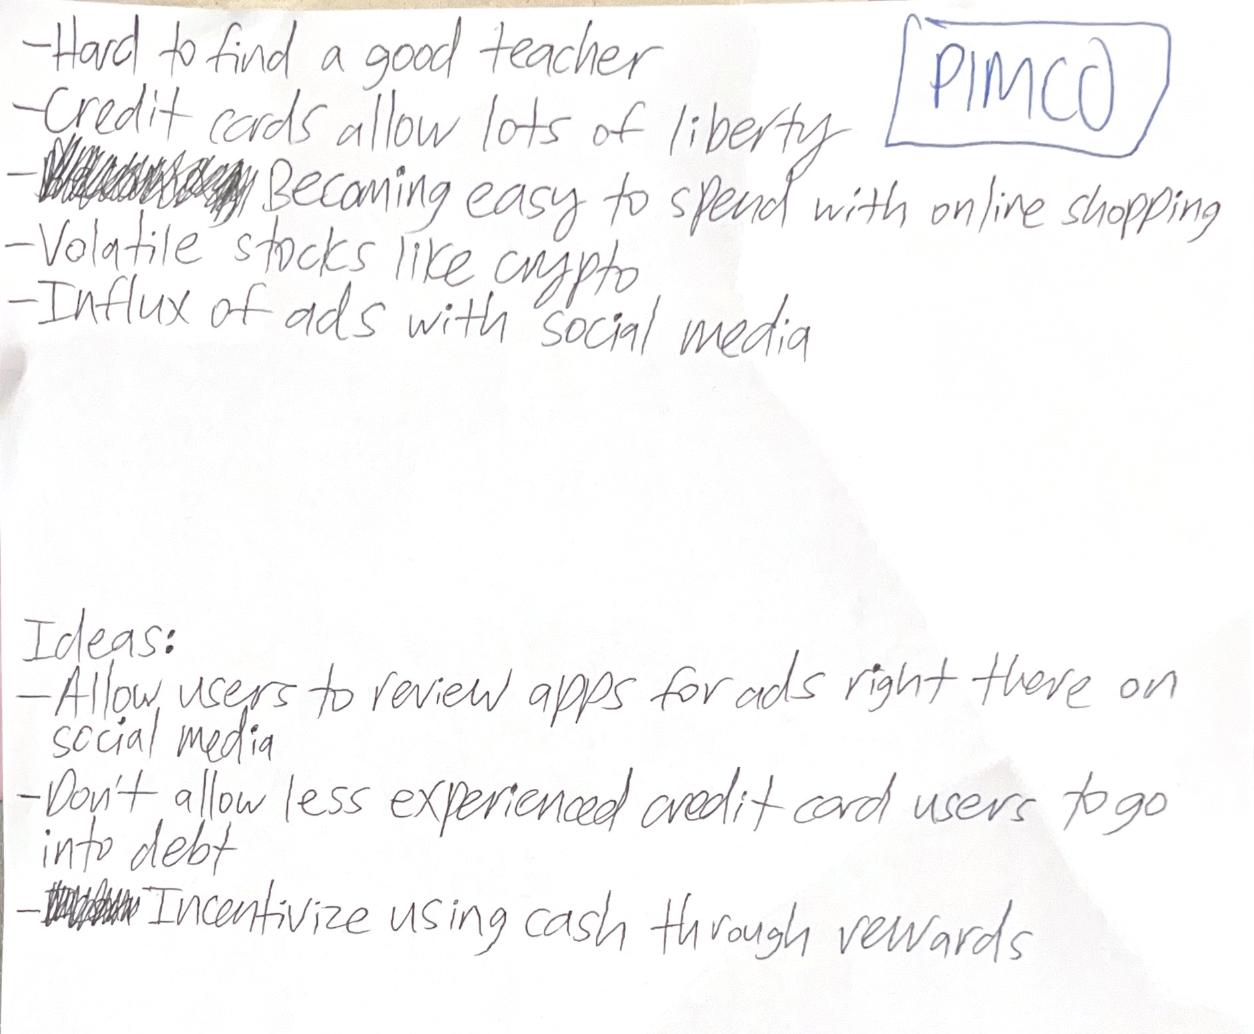 -Hard to find a good teacher
PIMCO
-Credit cards allow lots of liberty
- Becoming easy to spend with online shopping
-Volatile stocks like crypto
-Influx of ads with social media
Ideas:
-Allow users to review apps for ads right there on
social media
-Don't allow less experienced credit card users to go
into debt
- Incentivize using cash through rewards